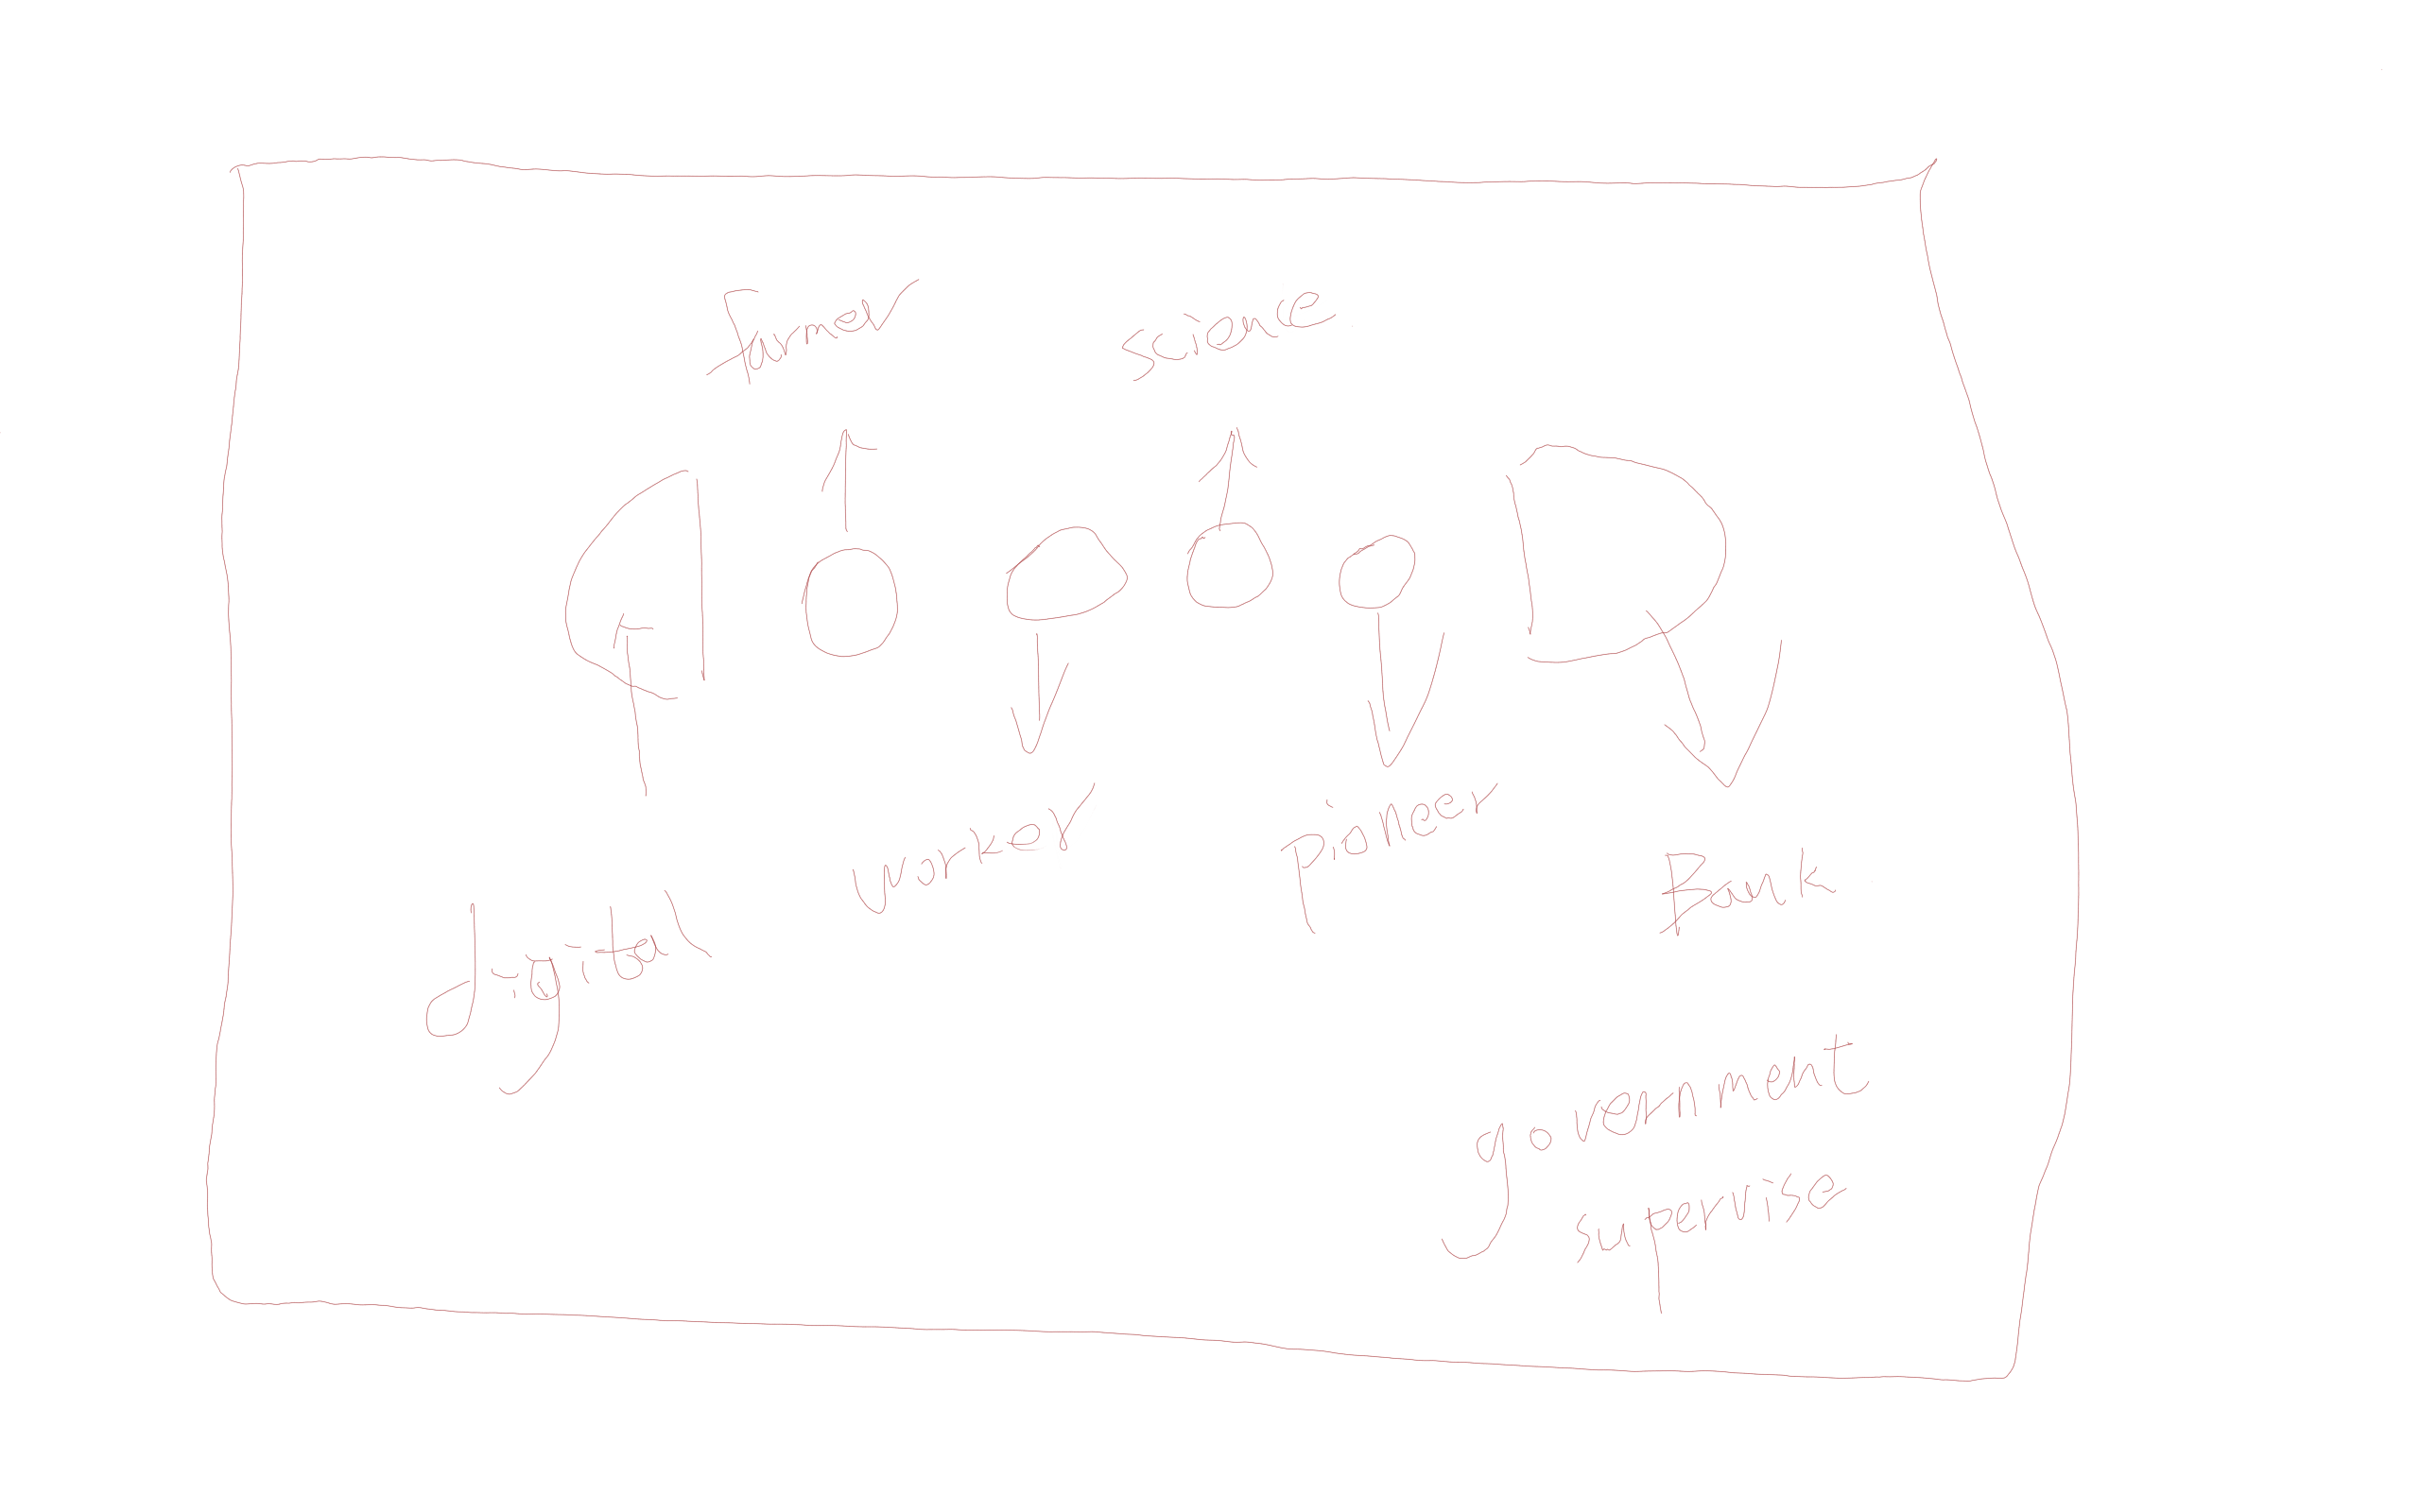 Farmer
science
digital
worker
Pioneer
Bank
government
supervise